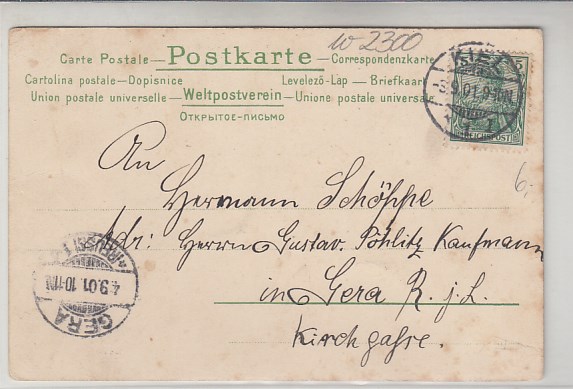 w 2300
Carte Postale — Postkarte — Correspondenzkarte
Cartolina postale — Dopisnice Levelező-Lap — Briefkaart
Union postale universelle — Weltpostverein — Unione postale universale
Открытое-письмо
KIEL
-3.9.01. 9-10N.
1
5
REICHSPOST
6,-
An
Hermann Schöppe
Adr: Herrn Gustav Pöhlitz Kaufmann
in Gera R. j. L.
Kirchgasse.
GERA
4.9.01. 10-11V.
(REUSS)